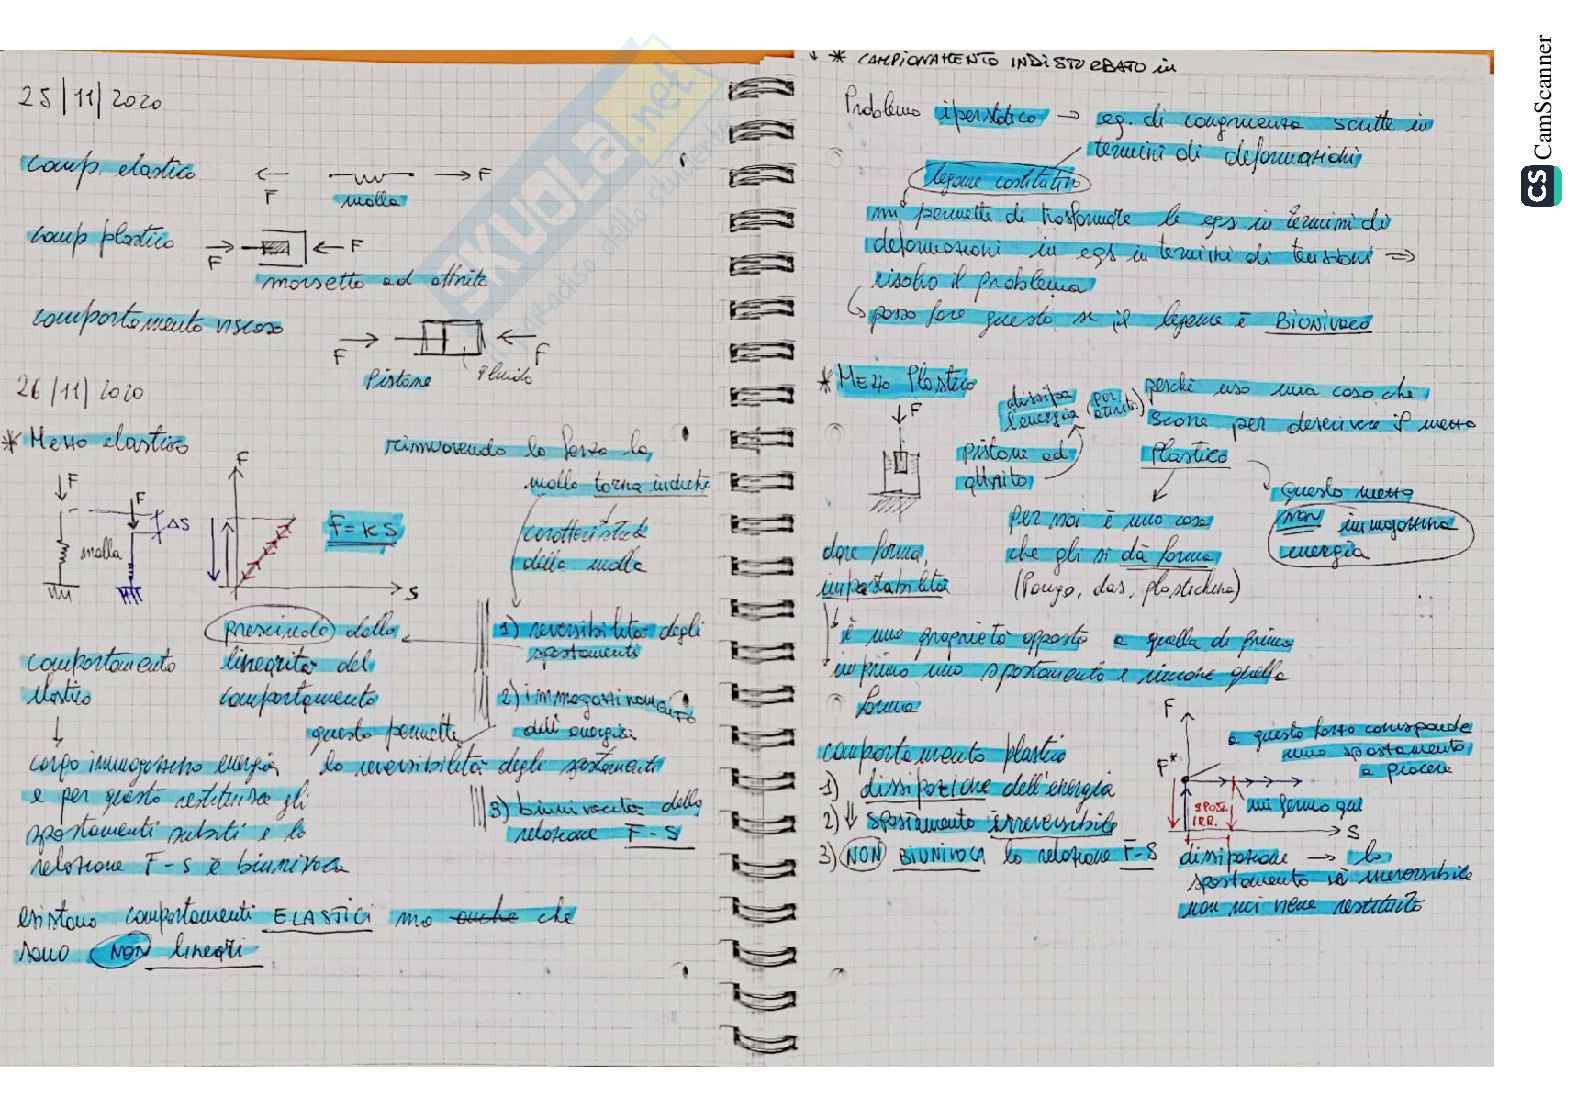 25/11/2020
comp. elastico
F
F
molla
comp plastico
F
F
morsetto ad attrito
comportamento viscoso
F
F
Pistone
fluido
26/11/2020
* Mezzo elastico
F
F
F
ΔS
molla
F = K S
S
rimuovendo la forza la
molla torna indietro
caratteristiche
della molla
prescindo dalla
linearità del
comportamento
1) reversibilità degli
spostamenti
2) immagazzinamento
dell'energia
3) biunivocità della
relazione F-S
comportamento
elastico
questo permette
la reversibilità degli spostamenti
corpo immagazzina energia
e per questo restituisce gli
spostamenti subiti e la
relazione F-S è biunivoca
esistono comportamenti ELASTICI ma anche che
sono NON lineari
* CAMPIONAMENTO INDISTURBATO in
Problema iperstatico → eq. di congruenza scritte in
termini di deformazioni
legame costitutivo
mi permette di trasformare le eqs in termini di
deformazioni in eqs in termini di tensioni ⇒
risolvo il problema
posso fare questo se il legame è BIUNIVOCO
* Mezzo Plastico
F
dissipa
l'energia
(per
attrito)
pistone ad
attrito
perché uso una cosa che
scorre per descrivere il mezzo
Plastico
per noi è una cosa
che gli si dà forma
(Pongo, das, plastichina)
questo mezzo
NON immagazzina
energia
dare forma,
impastabilità
è una proprietà opposta a quella di prima
imprimo uno spostamento e rimane quella
forma
comportamento plastico
1) dissipazione dell'energia
2) spostamento irreversibile
3) NON BIUNIVOCA la relazione F-S
F
F*
a questa forza corrisponde
uno spostamento
a piacere
SPOST.
IRR.
mi fermo qui
S
dissipazione → lo
spostamento è irreversibile
non mi viene restituito
SKUOLA.net
CamScanner
CS